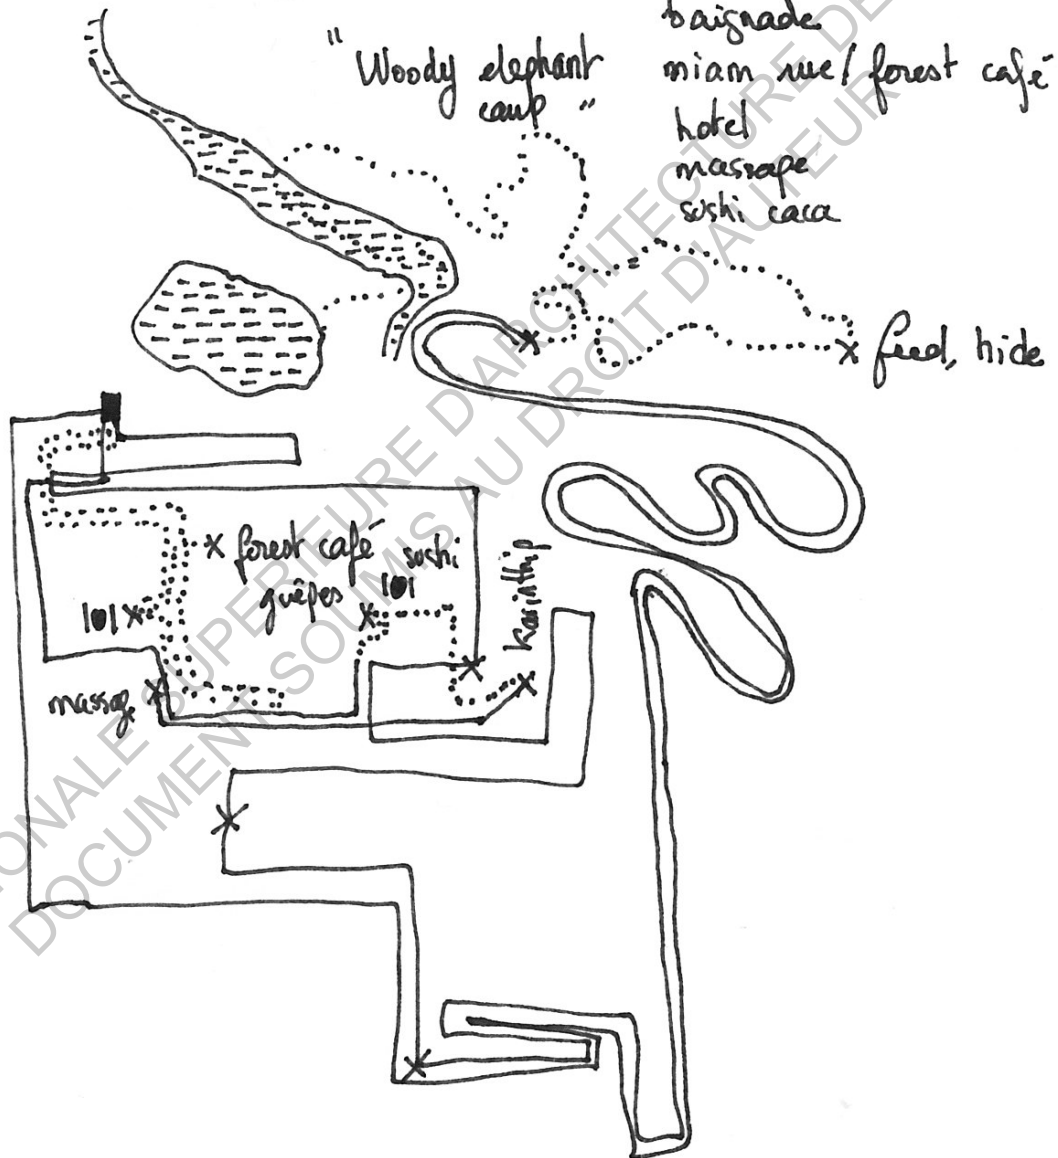 baignade
"Woody elephant
camp"
miam rue / forest café
hotel
massage
sushi caca
x feed, hide
x forest café
guêpes
sushi
101
101 x
Karinthip
massage
NATIONALE SUPERIEURE D'ARCHITECTURE DE
DOCUMENT SOUMIS AU DROIT D'AUTEUR